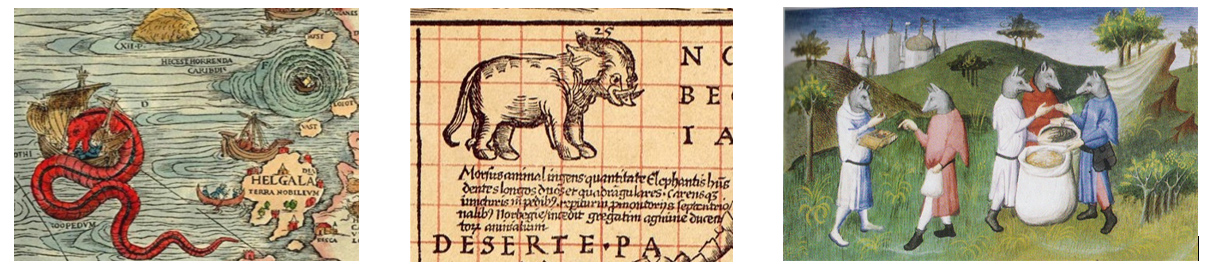 XII·P·
HIC EST HORRENDA
CARIBDIS
IVST
LOFOT
VAST
D
OTHI
HELGALA
TERRA NOBILIVM
25
N O
B E
I A
Morsus animal ingens quantitate Elephantis hñs
dentes longos duos et quadrãgulares. Carens qʒ
iuncturis in pedibʒ. repitur in pmontorijs septentrio
nalibʒ Norbegie incedit gregatim agmine ducen
torʒ animalium
DESERTE·PA